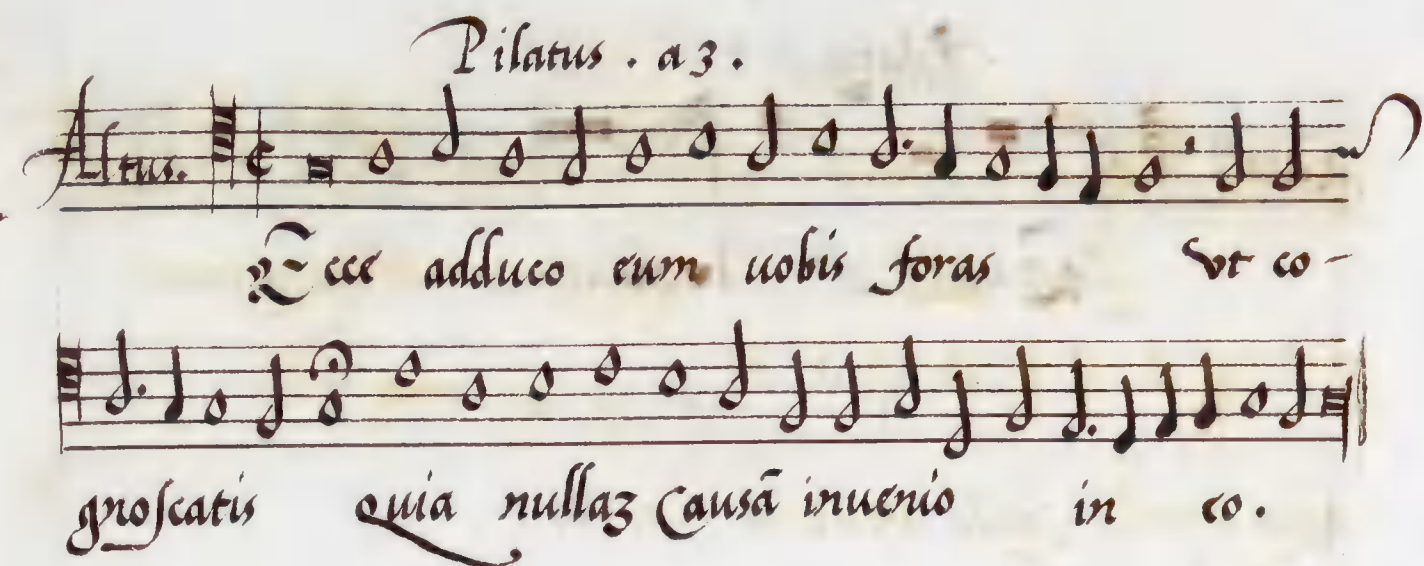 Pilatus . a 3 .
Altus.
Ecce adduco eum uobis foras vt co-
gnoscatis quia nullaz Causā inuenio in eo.